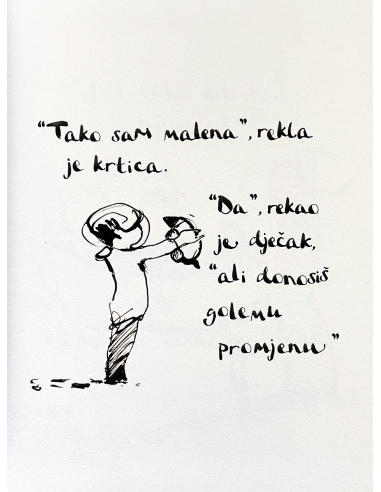 "Tako sam malena", rekla
je krtica.
"Da", rekao
je dječak,
"ali donosiš
golemu
promjenu"